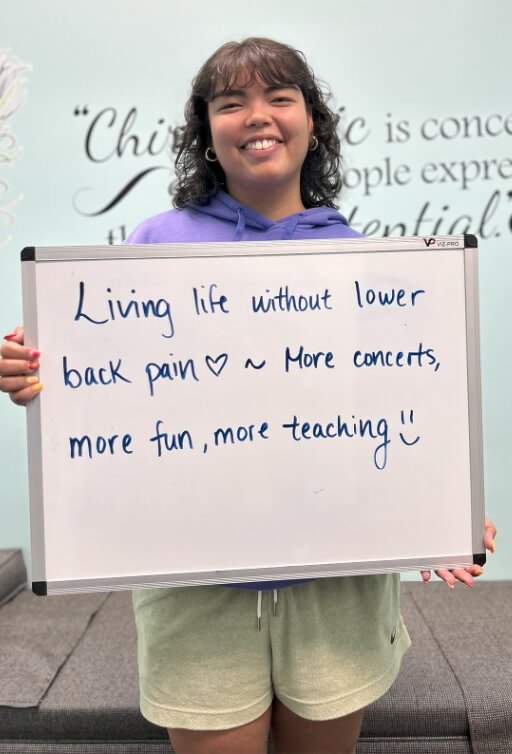 "Chi ic is conce
ople expre
th tential."
VP VIZ-PRO
Living life without lower
back pain♡ ~ More concerts,
more fun, more teaching!!